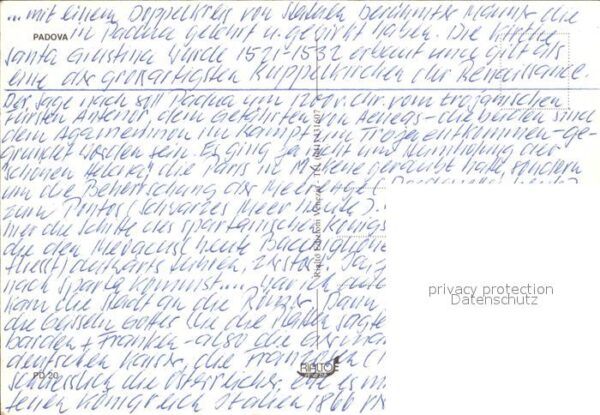 ...mit einem Doppelkreis von Statuen berühmter Männer die
PADOVA
in Padua gelehrt u. gewirkt haben. Die Kirche
Santa Giustina wurde 1521-1532 erbaut und gilt als
eine der großartigsten Kuppelkirchen der Renaissance.
Der Sage nach soll Padua um 1200 v. Chr. vom trojanischen
Fürsten Antenor, dem Gefährten von Aeneas - die beiden sind
dem Agamemnon im Kampf um Troja entkommen - ge-
gründet worden sein. Es ging ja nicht um Heimholung der
schönen Helena, die Paris in Mykene geraubt hatte, sondern
um die Beherrschung der Meerenge (Dardanellen heute)
zum Pontos (Schwarzes Meer heute).
mer die Schiffe des spartanischen Königs
die den Medoacus (heute Bacchiglione
fließt) aufwärts fuhren,
nach Sparta kommst....
kam die Stadt an die Römer. Dann
die Geisseln Gottes die die Italien sagte
barden + Franken - also die German
deutschen Kaiser, die Franzosen (
schliesslich die Österreicher, ehe es
Königreich Italien 1866
Rialto Edizioni Venezia
RIALTO
VENEZIA
PD 20
privacy protection
Datenschutz